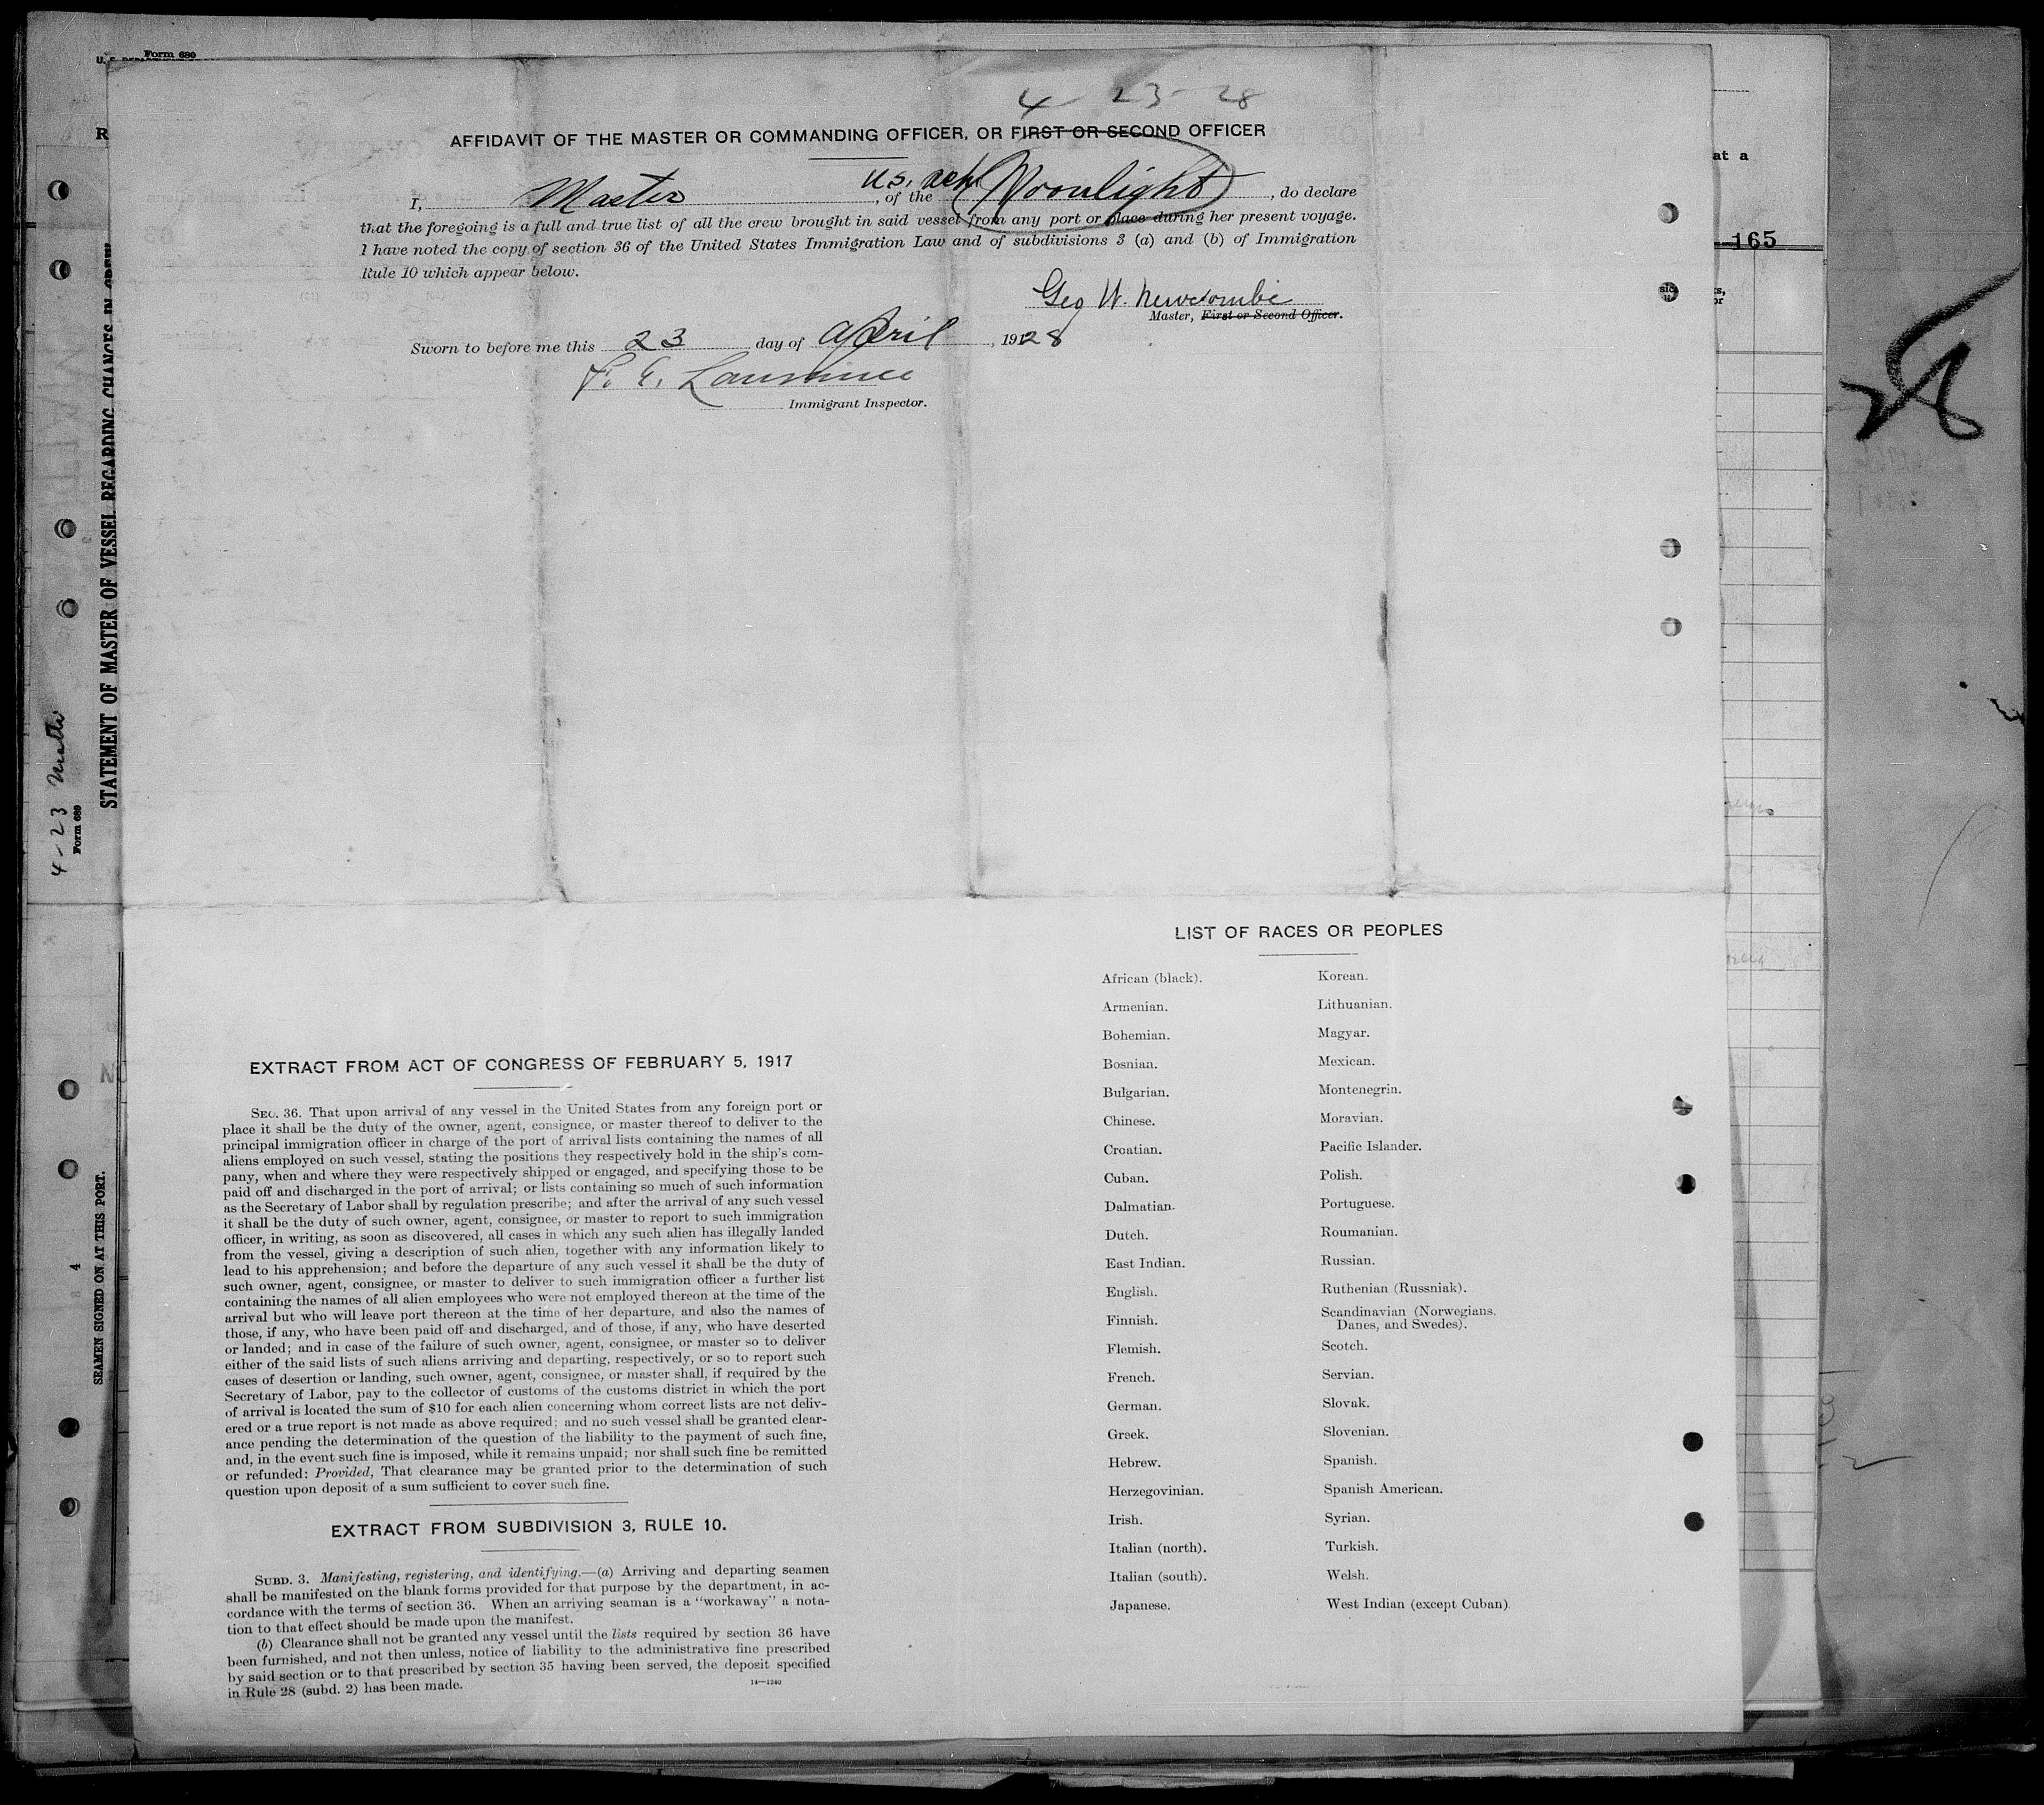 Form 689
4 - 23 - 28
AFFIDAVIT OF THE MASTER OR COMMANDING OFFICER, OR FIRST OR SECOND OFFICER
U.S. schr
I, Master, of the Moonlight, do declare
that the foregoing is a full and true list of all the crew brought in said vessel from any port or place during her present voyage.
I have noted the copy of section 36 of the United States Immigration Law and of subdivisions 3 (a) and (b) of Immigration
Rule 10 which appear below.
Geo W. Newcombe
Master, First or Second Officer.
Sworn to before me this 23 day of April, 1928
Immigrant Inspector.
at a
165
28
STATEMENT OF MASTER OF VESSEL REGARDING CHANGES IN CREW
4 - 23
Form 689
SEAMEN SIGNED ON AT THIS PORT.
4
EXTRACT FROM ACT OF CONGRESS OF FEBRUARY 5, 1917
SEC. 36. That upon arrival of any vessel in the United States from any foreign port or
place it shall be the duty of the owner, agent, consignee, or master thereof to deliver to the
principal immigration officer in charge of the port of arrival lists containing the names of all
aliens employed on such vessel, stating the positions they respectively hold in the ship's com-
pany, when and where they were respectively shipped or engaged, and specifying those to be
paid off and discharged in the port of arrival; or lists containing so much of such information
as the Secretary of Labor shall by regulation prescribe; and after the arrival of any such vessel
it shall be the duty of such owner, agent, consignee, or master to report to such immigration
officer, in writing, as soon as discovered, all cases in which any such alien has illegally landed
from the vessel, giving a description of such alien, together with any information likely to
lead to his apprehension; and before the departure of any such vessel it shall be the duty of
such owner, agent, consignee, or master to deliver to such immigration officer a further list
containing the names of all alien employees who were not employed thereon at the time of the
arrival but who will leave port thereon at the time of her departure, and also the names of
those, if any, who have been paid off and discharged, and of those, if any, who have deserted
or landed; and in case of the failure of such owner, agent, consignee, or master so to deliver
either of the said lists of such aliens arriving and departing, respectively, or so to report such
cases of desertion or landing, such owner, agent, consignee, or master shall, if required by the
Secretary of Labor, pay to the collector of customs of the customs district in which the port
of arrival is located the sum of $10 for each alien concerning whom correct lists are not deliv-
ered or a true report is not made as above required; and no such vessel shall be granted clear-
ance pending the determination of the question of the liability to the payment of such fine,
and, in the event such fine is imposed, while it remains unpaid; nor shall such fine be remitted
or refunded: Provided, That clearance may be granted prior to the determination of such
question upon deposit of a sum sufficient to cover such fine.
EXTRACT FROM SUBDIVISION 3, RULE 10.
SUBD. 3. Manifesting, registering, and identifying.—(a) Arriving and departing seamen
shall be manifested on the blank forms provided for that purpose by the department, in ac-
cordance with the terms of section 36. When an arriving seaman is a "workaway" a nota-
tion to that effect should be made upon the manifest.
(b) Clearance shall not be granted any vessel until the lists required by section 36 have
been furnished, and not then unless, notice of liability to the administrative fine prescribed
by said section or to that prescribed by section 35 having been served, the deposit specified
in Rule 28 (subd. 2) has been made.
14—1240
LIST OF RACES OR PEOPLES
African (black).
Armenian.
Bohemian.
Bosnian.
Bulgarian.
Chinese.
Croatian.
Cuban.
Dalmatian.
Dutch.
East Indian.
English.
Finnish.
Flemish.
French.
German.
Greek.
Hebrew.
Herzegovinian.
Irish.
Italian (north).
Italian (south).
Japanese.
Korean.
Lithuanian.
Magyar.
Mexican.
Montenegrin.
Moravian.
Pacific Islander.
Polish.
Portuguese.
Roumanian.
Russian.
Ruthenian (Russniak).
Scandinavian (Norwegians,
Danes, and Swedes).
Scotch.
Servian.
Slovak.
Slovenian.
Spanish.
Spanish American.
Syrian.
Turkish.
Welsh.
West Indian (except Cuban).